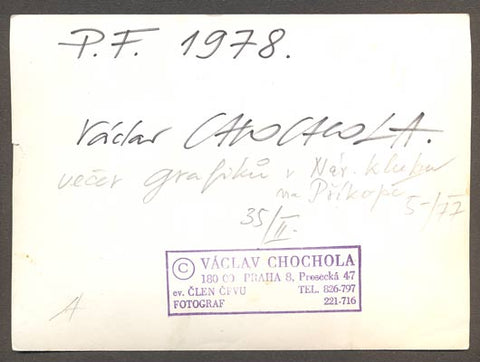 P.F. 1978.
Václav CHOCHOLA.
večer grafiků v Nár. klubu
na Příkopě
35/II. 5-/77
© VÁCLAV CHOCHOLA
180 00 PRAHA 8, Prosecká 47
ev. ČLEN ČFVU TEL. 826-797
FOTOGRAF 221-716
A